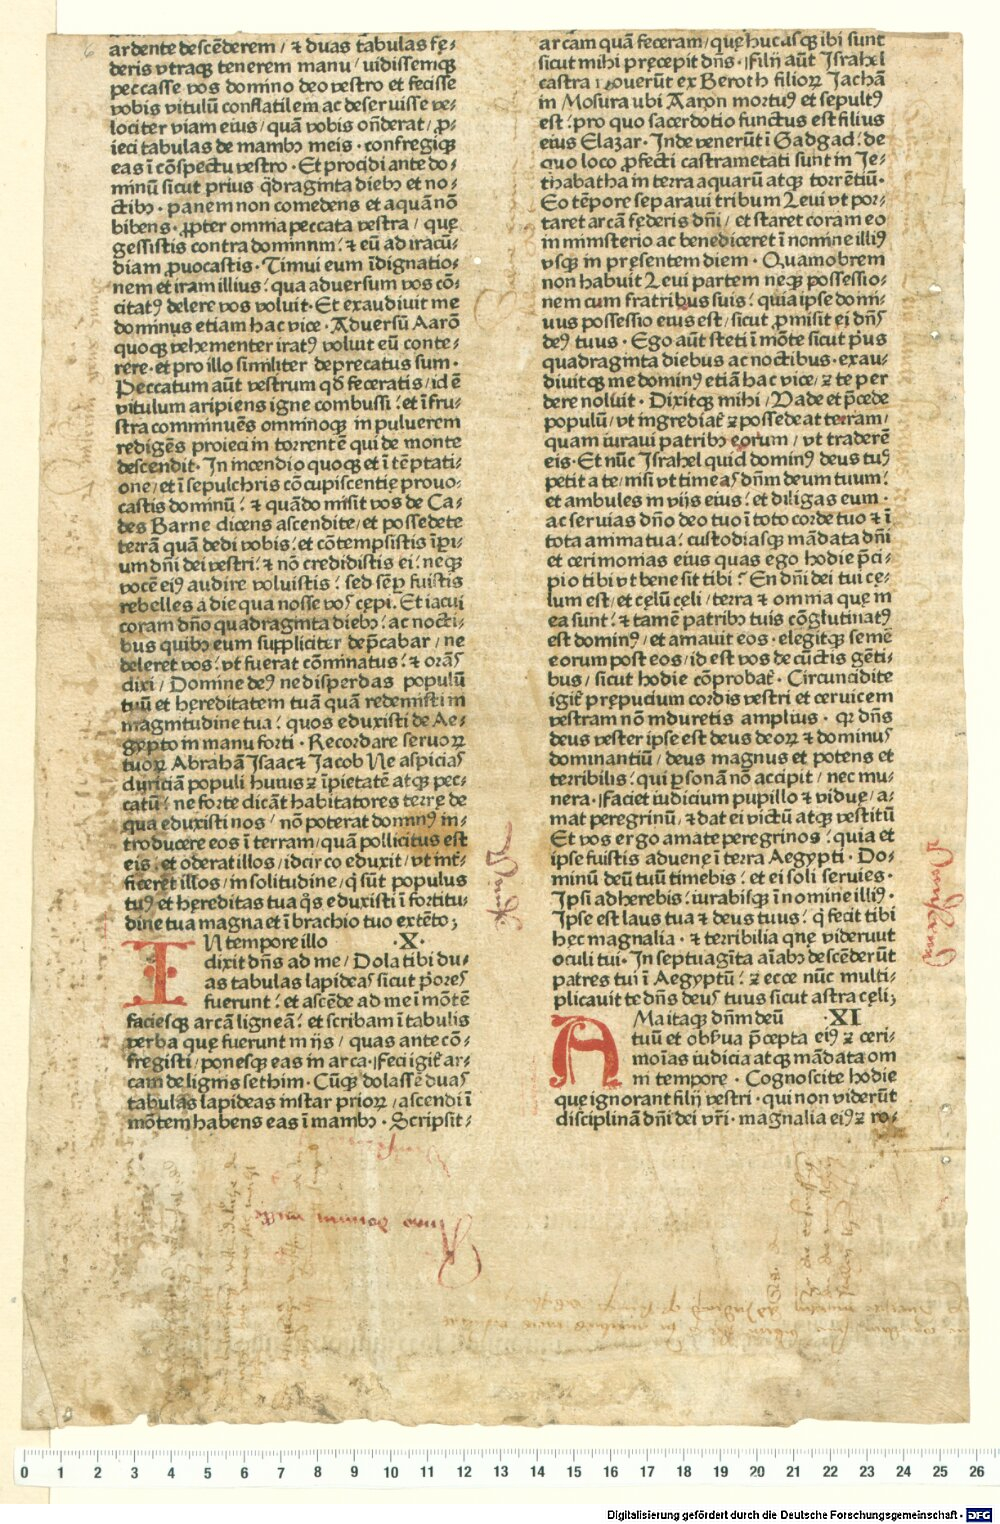 ardente descēderem / ⁊ duas tabulas fę⸗
deris vtrāqꝫ tenerem manu / uidissemqꝫ
peccasse vos domino deo vestro et fecisse
vobis vitulū conflatilem ac deseruisse ve⸗
lociter viam eius / quā vobis oñderat / ꝓ⸗
ieci tabulas de mambꝫ meis · confregiqꝫ
eas ī cōspectu vestro · Et procidi ante do⸗
minū sicut prius q̄draginta diebꝫ et no⸗
ctibꝫ · panem non comedens et aquā nō
bibens · ꝓpter omnia peccata vestra / quę
gessistis contra dominum : ⁊ eū ad iracū⸗
diam ꝓuocastis · Timui eum īdignatio⸗
nem et iram illius : qua aduersum vos cō⸗
citatꝰ delere vos voluit · Et exaudiuit me
dominus etiam hac vice · Aduersū Aarō
quoqꝫ vehementer iratꝰ voluit eū conte⸗
rere · et pro illo similiter deprecatus sum ·
Peccatum aūt vestrum qđ feceratis / id ē
vitulum aripiens igne combussi : et ī fru⸗
stra comminuēs omninoqꝫ in puluerem
redigēs proieci in torrentē qui de monte
descendit · In incendio quoqꝫ et ī tēptati⸗
one / et ī sepulchris cōcupiscentię prouo⸗
castis dominū : ⁊ quādo misit vos de Ca⸗
des Barne dicens ascendite / et possedete
terrā quā dedi vobis : et cōtempsistis īpi⸗
um dñi dei vestri : ⁊ nō credidistis ei : neqꝫ
vocē eiꝰ audire voluistis : sed sēꝑ fuistis
rebelles a die qua nosse vos cępi. Et iacui
coram dño quadraginta diebꝫ : ac nocti⸗
bus quibꝫ eum suppliciter dep̄cabar / ne
deleret vos : vt fuerat cōminatus : ⁊ orās
dixi / Domine deꝰ ne disperdas populū
tuū et hereditatem tuā quā redemisti in
magnitudine tua : quos eduxisti de Ae⸗
gypto in manu forti · Recordare seruoꝝ
tuoꝝ Abrahā Isaac ⁊ Jacob Ne aspicias
duriciā populi huius ⁊ īpietatē atqꝫ pec⸗
catū : ne forte dicāt habitatores terrę de
qua eduxisti nos / nō poterat dominꝰ in⸗
troducere eos ī terram / quā pollicitus est
eis : et oderat illos / idcirco eduxit / vt int̄⸗
ficeret illos / in solitudine / q̇ sūt populus
tuꝰ et hereditas tua q̄s eduxisti ī fortitu⸗
dine tua magna et ī brachio tuo extēto ;
IN tempore illo · X ·
dixit dñs ad me / Dola tibi du⸗
as tabulas lapideas sicut p̄ores
fuerunt : et ascēde ad me ī mōtē
faciesqꝫ arcā ligneā : et scribam ī tabulis
verba que fuerunt in ijs / quas ante cō⸗
fregisti / ponesqꝫ eas in arca · Feci igiť ar⸗
cam de lignis sethim · Cūqꝫ dolassē duas
tabulas lapideas instar prioꝝ / ascendi ī
mōtem habens eas ī mambꝫ · Scripsit⸗
arcam quā feceram / quę hucusqꝫ ibi sunt
sicut mihi pręcepit dñs · Filij aūt Israhel
castra mouerūt ex Beroth filioꝝ Jachā
in Mosura ubi Aaron mortuꝰ et sepultꝰ
est : pro quo sacerdotio functus est filius
eius Elazar · Inde venerūt ī Gadgad : de
quo loco ꝓfecti castrametati sunt in Je⸗
thabatha in terra aquarū atqꝫ torrētiū ·
Eo tēpore separaui tribum Leui vt por⸗
taret arcā fęderis dñi / et staret coram eo
in ministerio ac benediceret ī nomine illiꝰ
vsqꝫ in pręsentem diem · Quamobrem
non habuit Leui partem neqꝫ possessio⸗
nem cum fratribus suis : quia ipse domi⸗
nus possessio eius est / sicut ꝓmisit ei dñs
deꝰ tuus · Ego aūt steti ī mōte sicut p̄us
quadraginta diebus ac noctibus · exau⸗
diuitqꝫ me dominꝰ etiā hac vice / ⁊ te per
dere noluit · Dixitqꝫ mihi / Vade et p̄cede
populū / vt ingrediať ⁊ possedeat terram /
quam iuraui patribꝫ eorum / vt traderē
eis · Et nūc Israhel quid dominꝰ deus tuꝰ
petit a te / nisi vt timeas dñm deum tuum :
et ambules in vijs eius : et diligas eum ·
ac seruias dño deo tuo ī toto corde tuo ⁊ ī
tota anima tua : custodiasqꝫ mādata dñi
et cerimonias eius quas ego hodie p̄ci⸗
pio tibi vt bene sit tibi : En dñi dei tui cę⸗
lum est / et cęlū cęli / terra ⁊ omnia que in
ea sunt : ⁊ tamē patribꝫ tuis cōglutinatꝰ
est dominꝰ / et amauit eos · elegitqꝫ semē
eorum post eos / id est vos de cūctis gēti⸗
bus / sicut hodie cōprobať · Circuncidite
igiť prępucium cordis vestri et ceruicem
vestram nō induretis amplius · qꝛ dñs
deus vester ipse est deus deoꝝ ⁊ dominus
dominantiū / deus magnus et potens et
terribilis : qui ꝑsonā nō accipit / nec mu⸗
nera · Faciet iudicium pupillo ⁊ viduę / a⸗
mat peregrinū / ⁊ dat ei victū atqꝫ vestitū
Et vos ergo amate peregrinos : quia et
ipse fuistis aduenę ī terra Aegypti · Do⸗
minū deū tuū timebis : et ei soli seruies ·
Ipsi adherebis : iurabisqꝫ ī nomine illiꝰ ·
Ipse est laus tua ⁊ deus tuus : q̇ fecit tibi
hęc magnalia · ⁊ terribilia quę viderunt
oculi tui · In septuagīta aīabꝫ descēderūt
patres tui ī Aegyptū : ⁊ ecce nūc multi⸗
plicauit te dñs deus tuus sicut astra cęli ;
AMa itaqꝫ dñm deū · XI
tuū et obẜua p̄cepta eiꝰ ⁊ ceri⸗
moīas iudicia atqꝫ mādata om
ni tempore · Cognoscite hodie
que ignorant filij vestri · qui non viderūt
disciplinā dñi dei vr̄i · magnalia eiꝰ ⁊ ro⸗
Anno domini mille
0 1 2 3 4 5 6 7 8 9 10 11 12 13 14 15 16 17 18 19 20 21 22 23 24 25 26
Digitalisierung gefördert durch die Deutsche Forschungsgemeinschaft - DFG